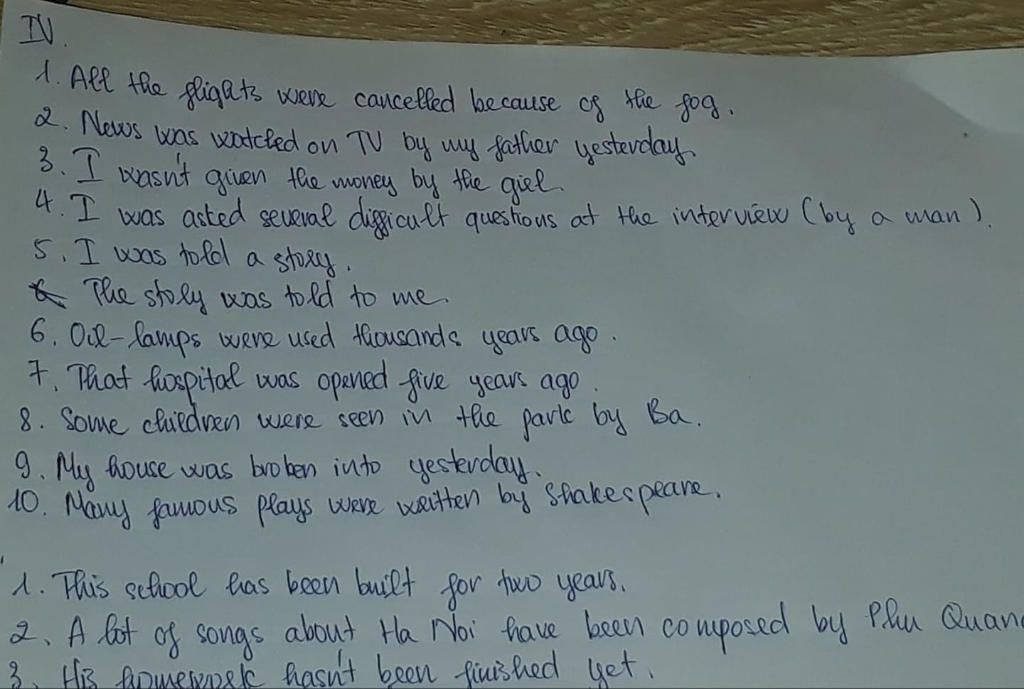 IV.
1. All the flights were cancelled because of the fog.
2. News was watched on TV by my father yesterday.
3. I wasn't given the money by the girl.
4. I was asked several difficult questions at the interview (by a man).
5. I was told a story.
The story was told to me.
6. Oil-lamps were used thousands years ago.
7. That hospital was opened five years ago.
8. Some children were seen in the park by Ba.
9. My house was broken into yesterday.
10. Many famous plays were written by Shakespeare.
1. This school has been built for two years.
2. A lot of songs about Ha Noi have been composed by Phu Quang
3. His homework hasn't been finished yet.